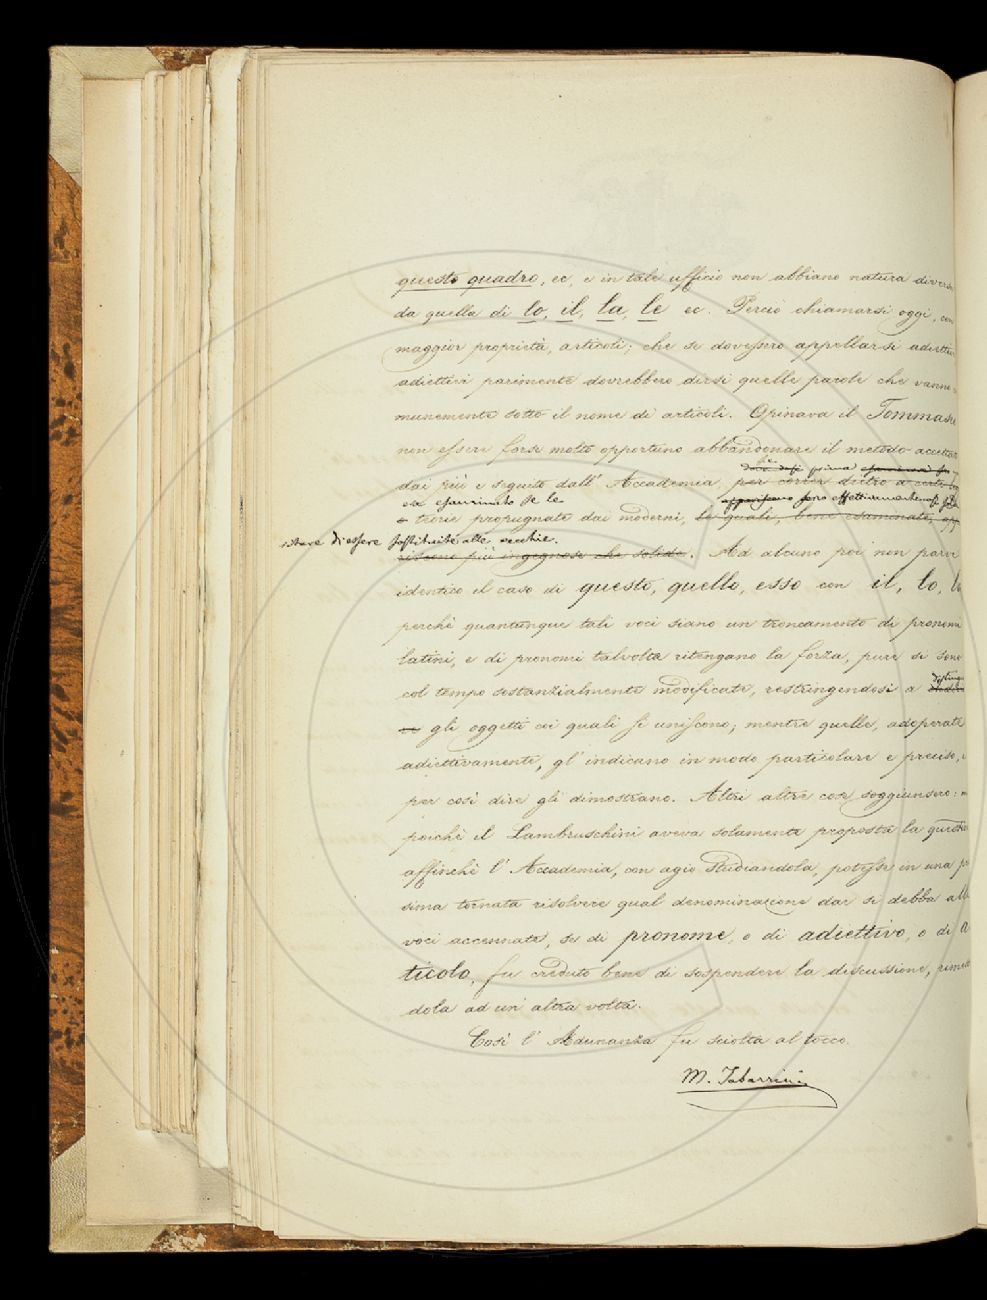 questo quadro, ec, e in tale ufficio non abbiano natura divers
da quella di lo, il, la, le ec. Perciò chiamarsi oggi, con
maggior proprietà, articoli; che se dovessero appellarsi adietti
adiettivi parimente dovrebbero dirsi quelle parole che vanno
munemente sotto il nome di articoli. Opinava il Tommase
non essere forse molto opportuno abbandonare il metodo accetta
prima
dai più e seguito dall' Accademia, per correr dietro a certe
ora esaminato se le
appariscano sono effettivamente
teorie propugnate dai moderni, le quali, bene esaminate, app
di essere sostituite alle vecchie.
riscono più ingegnose che solide. Ad alcuno poi non parve
identico il caso di questo, quello, esso con il, lo, l
perchè quantunque tali voci siano un troncamento di pronomi
latini, e di pronomi talvolta ritengano la forza, pure si sono
col tempo sostanzialmente modificate, restringendosi a
gli oggetti coi quali si uniscono; mentre quelle, adoperate
adiettivamente, gl' indicano in modo particolare e preciso,
per così dire gli dimostrano. Altri altre cose soggiunsero: m
poichè il Lambruschini aveva solamente proposta la question
affinchè l' Accademia, con agio studiandola, potesse in una pr
sima tornata risolvere qual denominazione dar si debba all
voci accennate, se di pronome, o di adiettivo, o di a
ticolo, fu creduto bene di sospendere la discussione, rimett
dola ad un' altra volta.
Così l' Adunanza fu sciolta al tocco.
M. Tabarrini